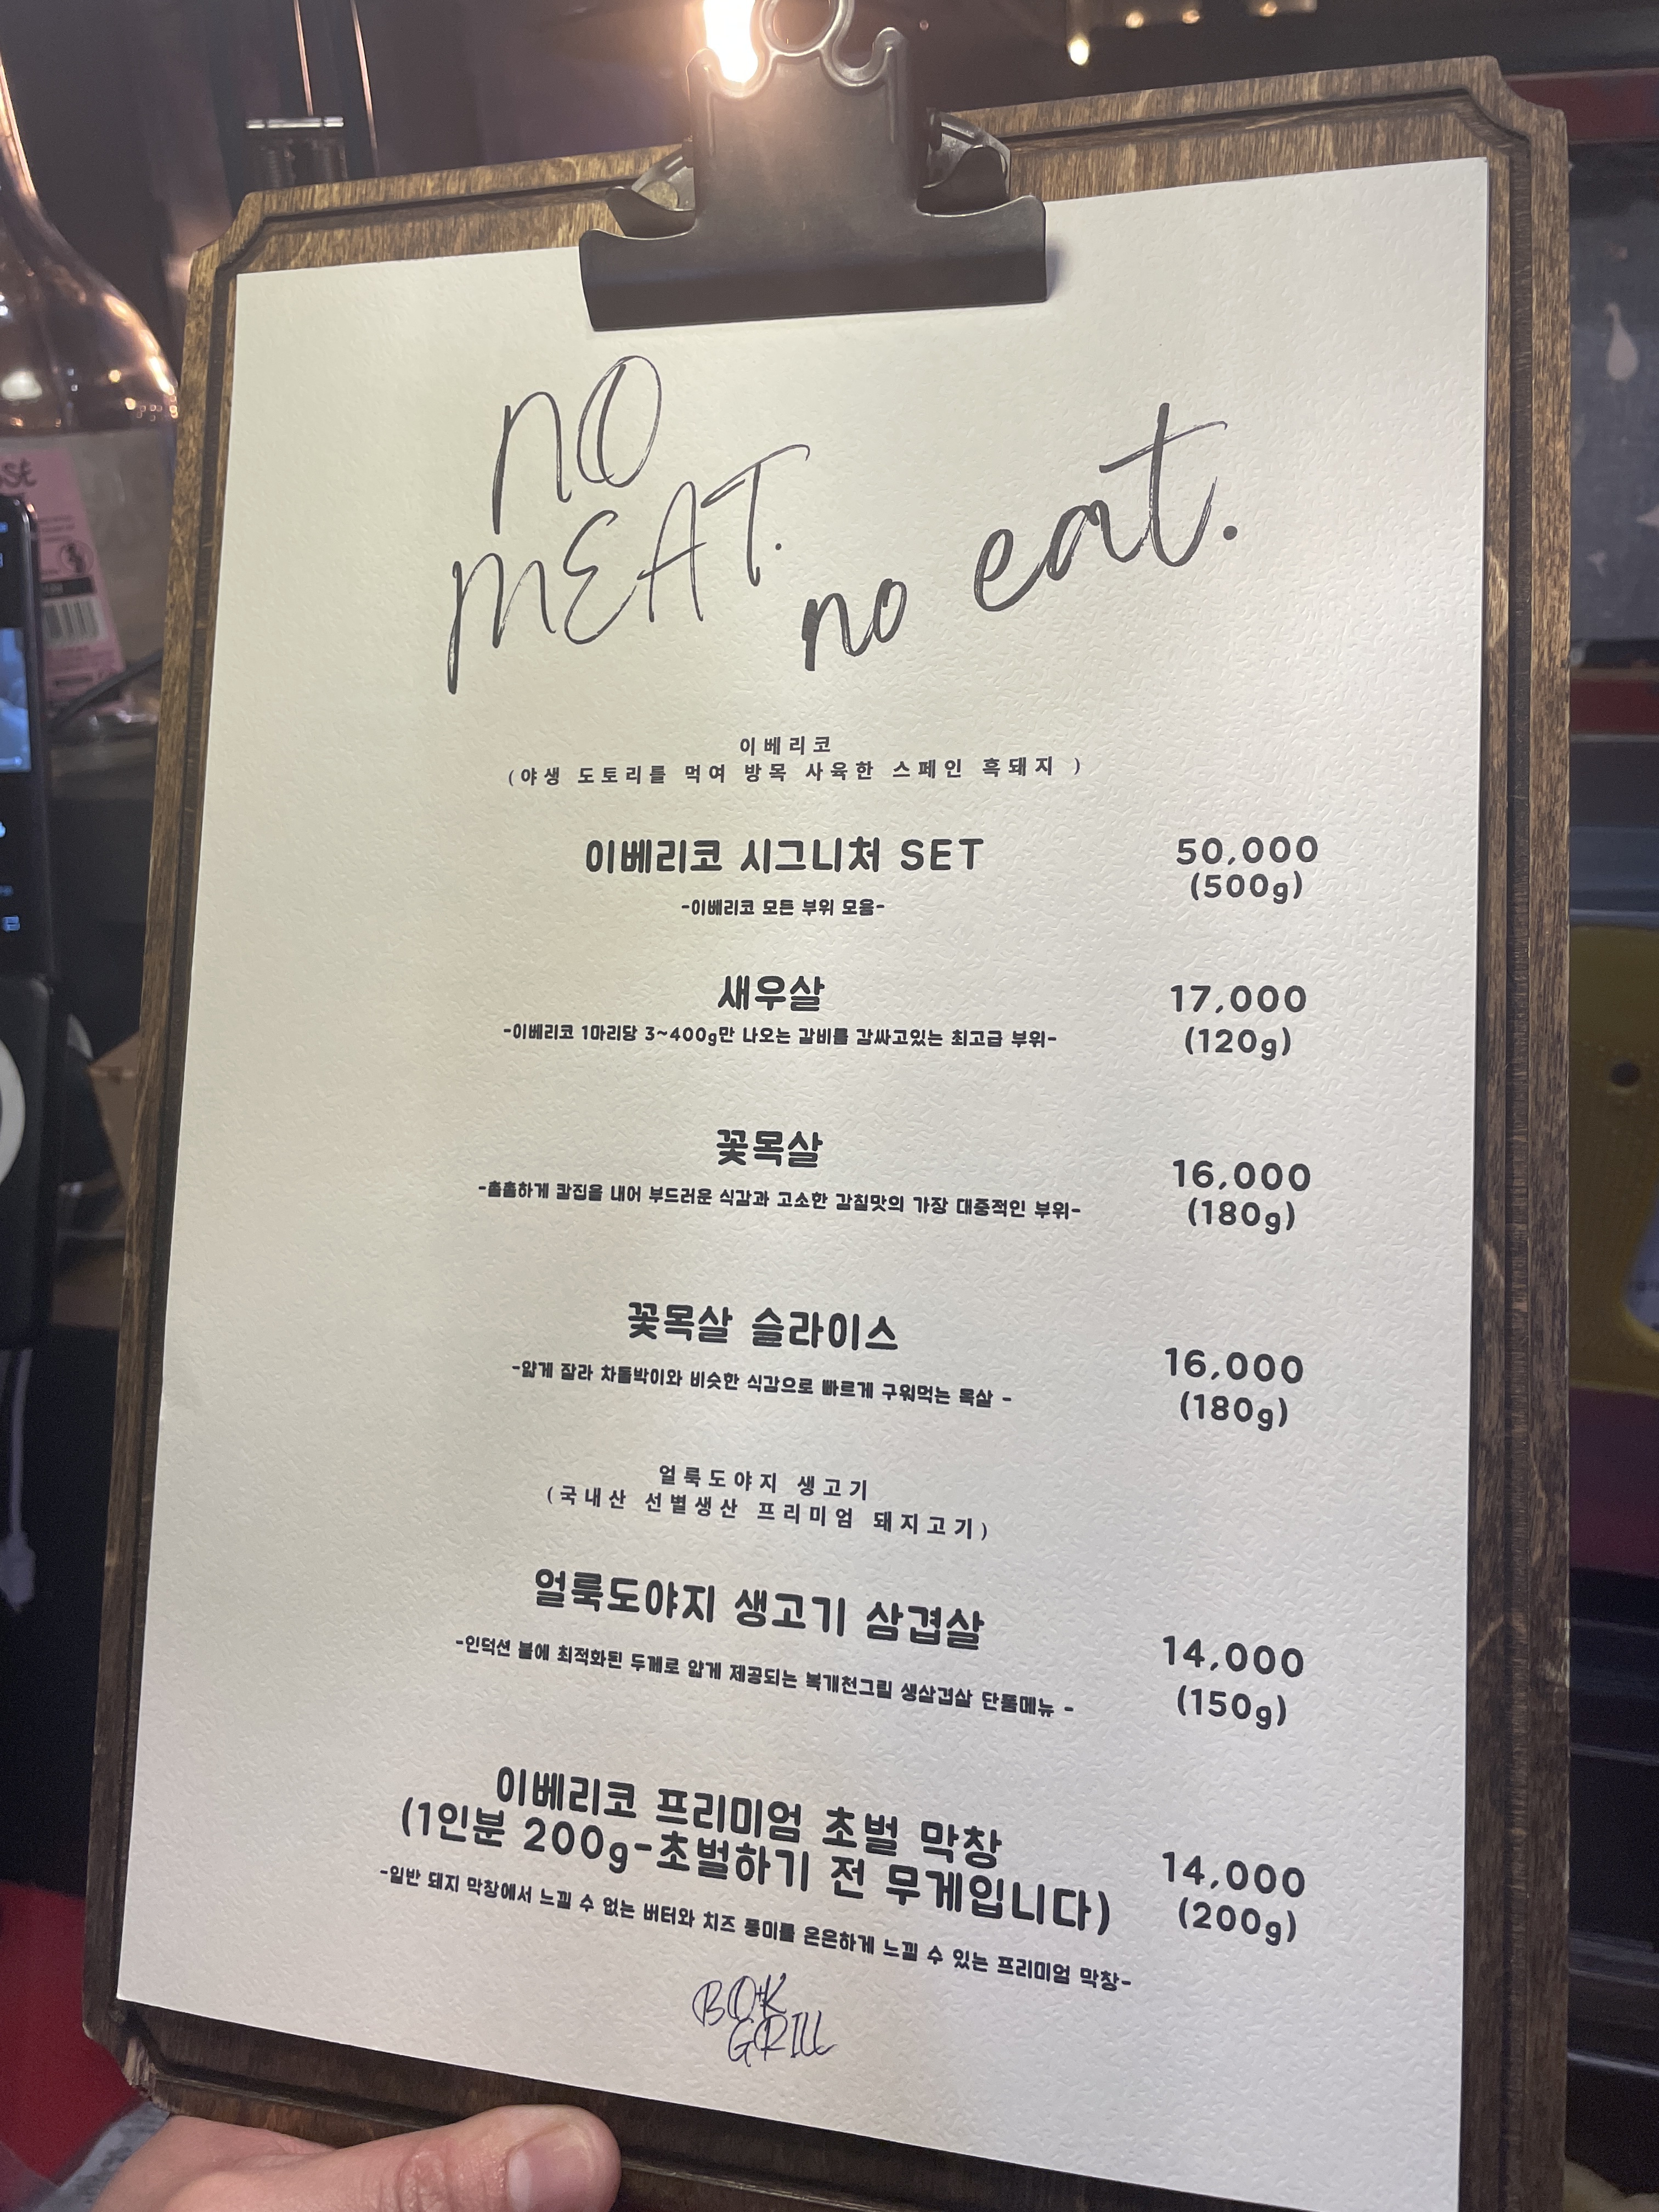 NO
MEAT.
no eat.
이베리코
(야생 도토리를 먹여 방목 사육한 스페인 흑돼지 )
이베리코 시그니처 SET
50,000
(500g)
-이베리코 모든 부위 모음-
새우살
17,000
-이베리코 1마리당 3~400g만 나오는 갈비를 감싸고있는 최고급 부위-
(120g)
꽃목살
16,000
-촘촘하게 칼집을 내어 부드러운 식감과 고소한 감칠맛의 가장 대중적인 부위-
(180g)
꽃목살 슬라이스
16,000
-얇게 잘라 차돌박이와 비슷한 식감으로 빠르게 구워먹는 목살 -
(180g)
얼룩도야지 생고기
(국내산 선별생산 프리미엄 돼지고기)
얼룩도야지 생고기 삼겹살
14,000
-인덕션 불에 최적화된 두께로 얇게 제공되는 복개천그릴 생삼겹살 단품메뉴 -
(150g)
이베리코 프리미엄 초벌 막창
(1인분 200g-초벌하기 전 무게입니다)
14,000
(200g)
-일반 돼지 막창에서 느낄 수 없는 버터와 치즈 풍미를 은은하게 느낄 수 있는 프리미엄 막창-
BOK
GRILL